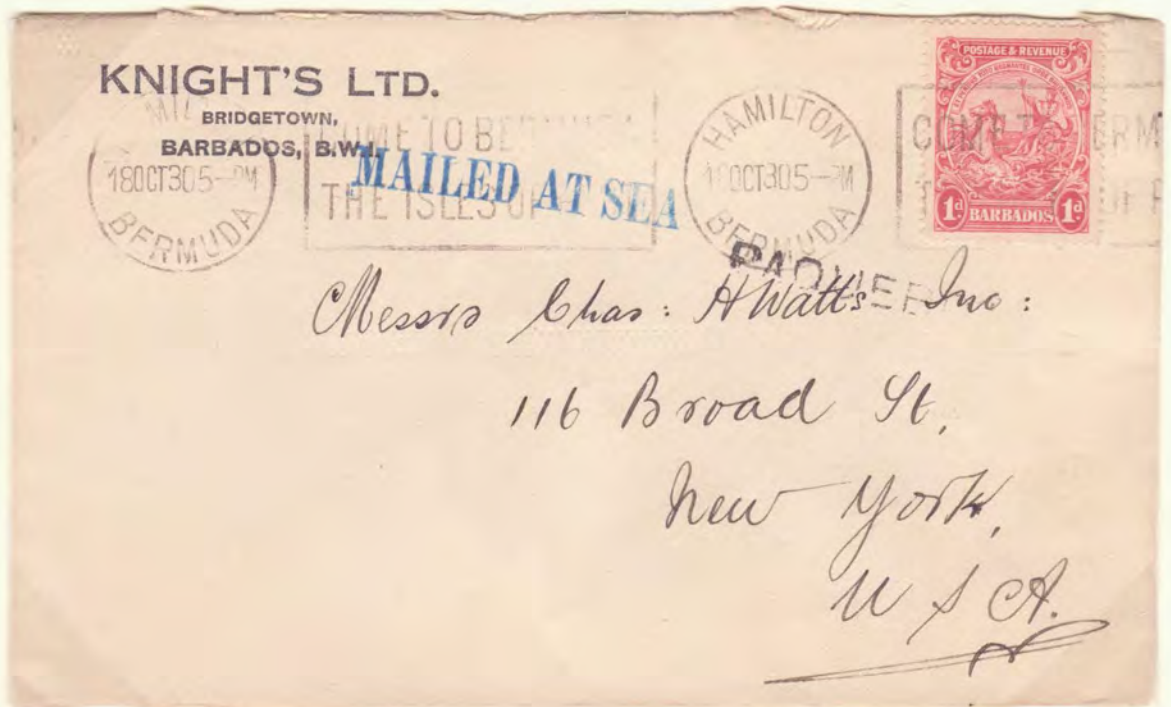 KNIGHT'S LTD.
BRIDGETOWN,
BARBADOS, B.W.I.
18OCT305-PM
BERMUDA
COME TO
THE ISLES OF
MAILED AT SEA
HAMILTON
18OCT305-PM
BERMUDA
POSTAGE & REVENUE
1d BARBADOS 1d
Messrs Chas: H Watts Inc:
116 Broad St,
New York,
U S A.